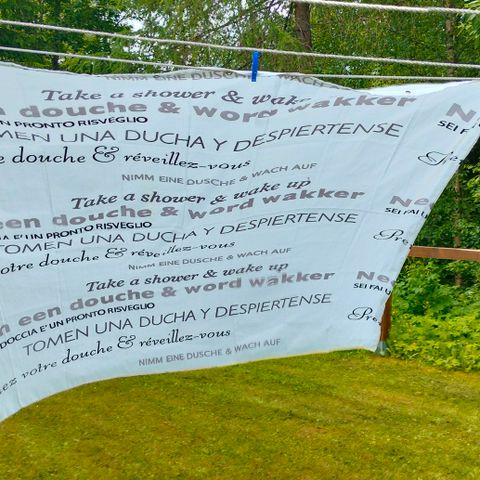 NIMM EINE DUSCHE & WACH AUF
Take a shower & wake
en douche & word wakker Ne
UN PRONTO RISVEGLIO SEI FAI U
TOMEN UNA DUCHA Y DESPIERTENSE
re douche & réveillez-vous Pre
NIMM EINE DUSCHE & WACH AUF
Take a shower & wake up
een douche & word wakker Nee
A E' UN PRONTO RISVEGLIO SEI FAI U
TOMEN UNA DUCHA Y DESPIERTENSE
votre douche & réveillez-vous Pre
NIMM EINE DUSCHE & WACH AUF
Take a shower & wake up
m een douche & word wakker Ne
DOCCIA E' UN PRONTO RISVEGLIO SEI FAI U
TOMEN UNA DUCHA Y DESPIERTENSE
ez votre douche & réveillez-vous Pre
NIMM EINE DUSCHE & WACH AUF